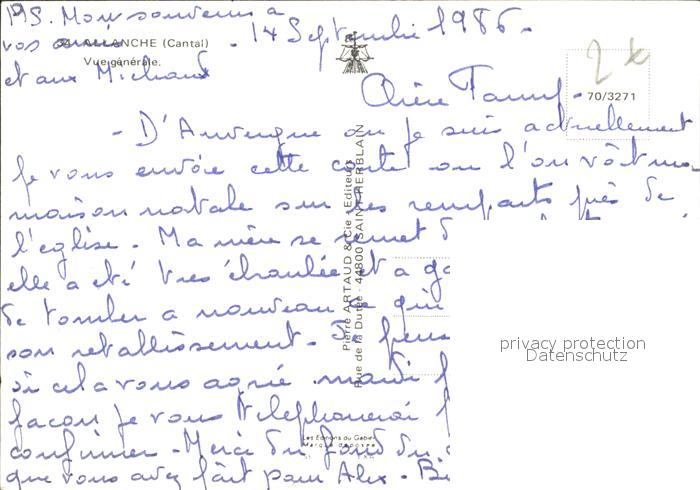 PS. Mon souvenir a
vos amis
et aux Michaud
ALLANCHE (Cantal)
Vue générale.
14 Septembre 1986.
70/3271
Chère
- D'Auvergne ou je suis actuellement
Je vous envoie cette carte ou l'on voit ma
maison natale sur les remparts près de
l'eglise. Ma mère se remet
elle a été très ébranlée et a
de tomber a nouveau ce qui
son retablissement. Je pense
si cela vous agrée mardi
façon je vous telephonerai
confirmer. Merci du fond du
que vous avez fait pour Alex.
Pierre ARTAUD & Cie - Editeurs
Rue de la Dutée - 44800 SAINT-HERBLAIN
Les Editions du Gabier
Marque déposée
privacy protection
Datenschutz